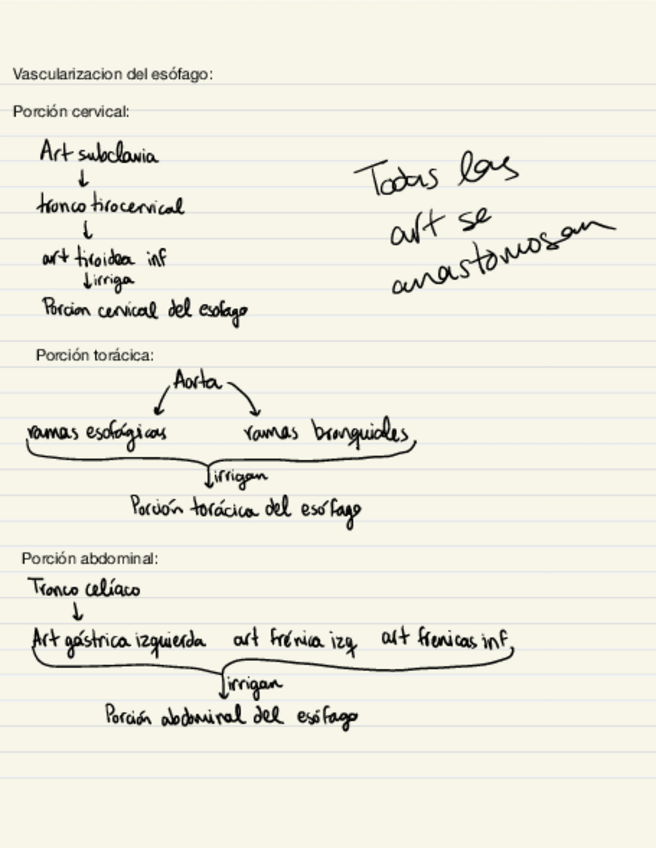 Vascularizacion del esófago:
Porción cervical:
Art subclavia
tronco tirocervical
art tiroidea inf
irriga
Porcion cervical del esofago
Todas las
art se
anastomosan
Porción torácica:
Aorta
ramas esofágicas ramas bronquiales
irrigan
Porción torácica del esófago
Porción abdominal:
Tronco celíaco
Art gástrica izquierda art frénica izq art frenicas inf
irrigan
Porción abdominal del esófago